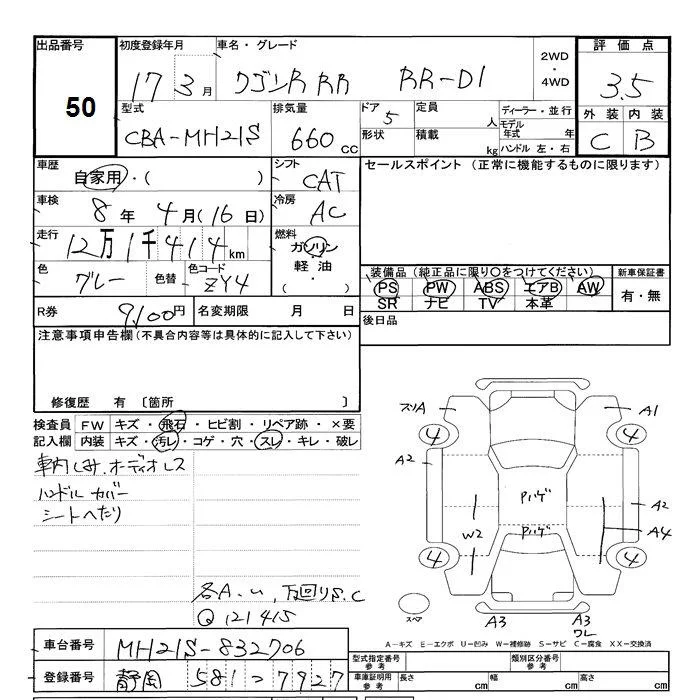 出品番号 初度登録年月 車名・グレード 2WD・4WD 評価点
50 17年3月 ワゴンR RR RR-DI 3.5
型式 排気量 ドア 5 定員 人 ディーラー・並行 外装 内装
CBA-MH21S 660cc 形状 積載 kg モデル年式 年 C B
ハンドル 左・右
車歴 自家用・( ) シフト CAT セールスポイント (正常に機能するものに限ります)
車検 8年4月(16日) 冷房 AC
走行 12万1千414km 燃料 ガソリン 軽油 ( ・ )
色 グレー 色替 色コード ZY4 装備品 (純正品に限り○をつけてください) 新車保証書
PS PW ABS エアB AW 有・無
SR ナビ TV 本革
R券 9,100円 名変期限 月 日 後日品
注意事項申告欄(不具合内容等は具体的に記入して下さい)
修復歴 有 〔箇所 〕
検査員 FW キズ・飛石・ヒビ割・リペア跡・×要
記入欄 内装 キズ・汚レ・コゲ・穴・スレ・キレ・破レ
車内しみ.オーディオレス
ハンドルカバー
シートへたり
各A.U,下回りS.C
Q 121415
スリA A1
4 4
A2 Pハゲ A2
W2 Pハゲ A4
4 4
スペア A3 A3
ワレ
A-キズ E-エクボ U-凹み W-補修跡 S-サビ C-腐食 XX-交換済
車台番号 MH21S-832706 型式指定番号 参考 類別区分番号 参考
登録番号 静岡 581 7927 車庫証明用 参考 長さ cm 幅 cm 高さ cm